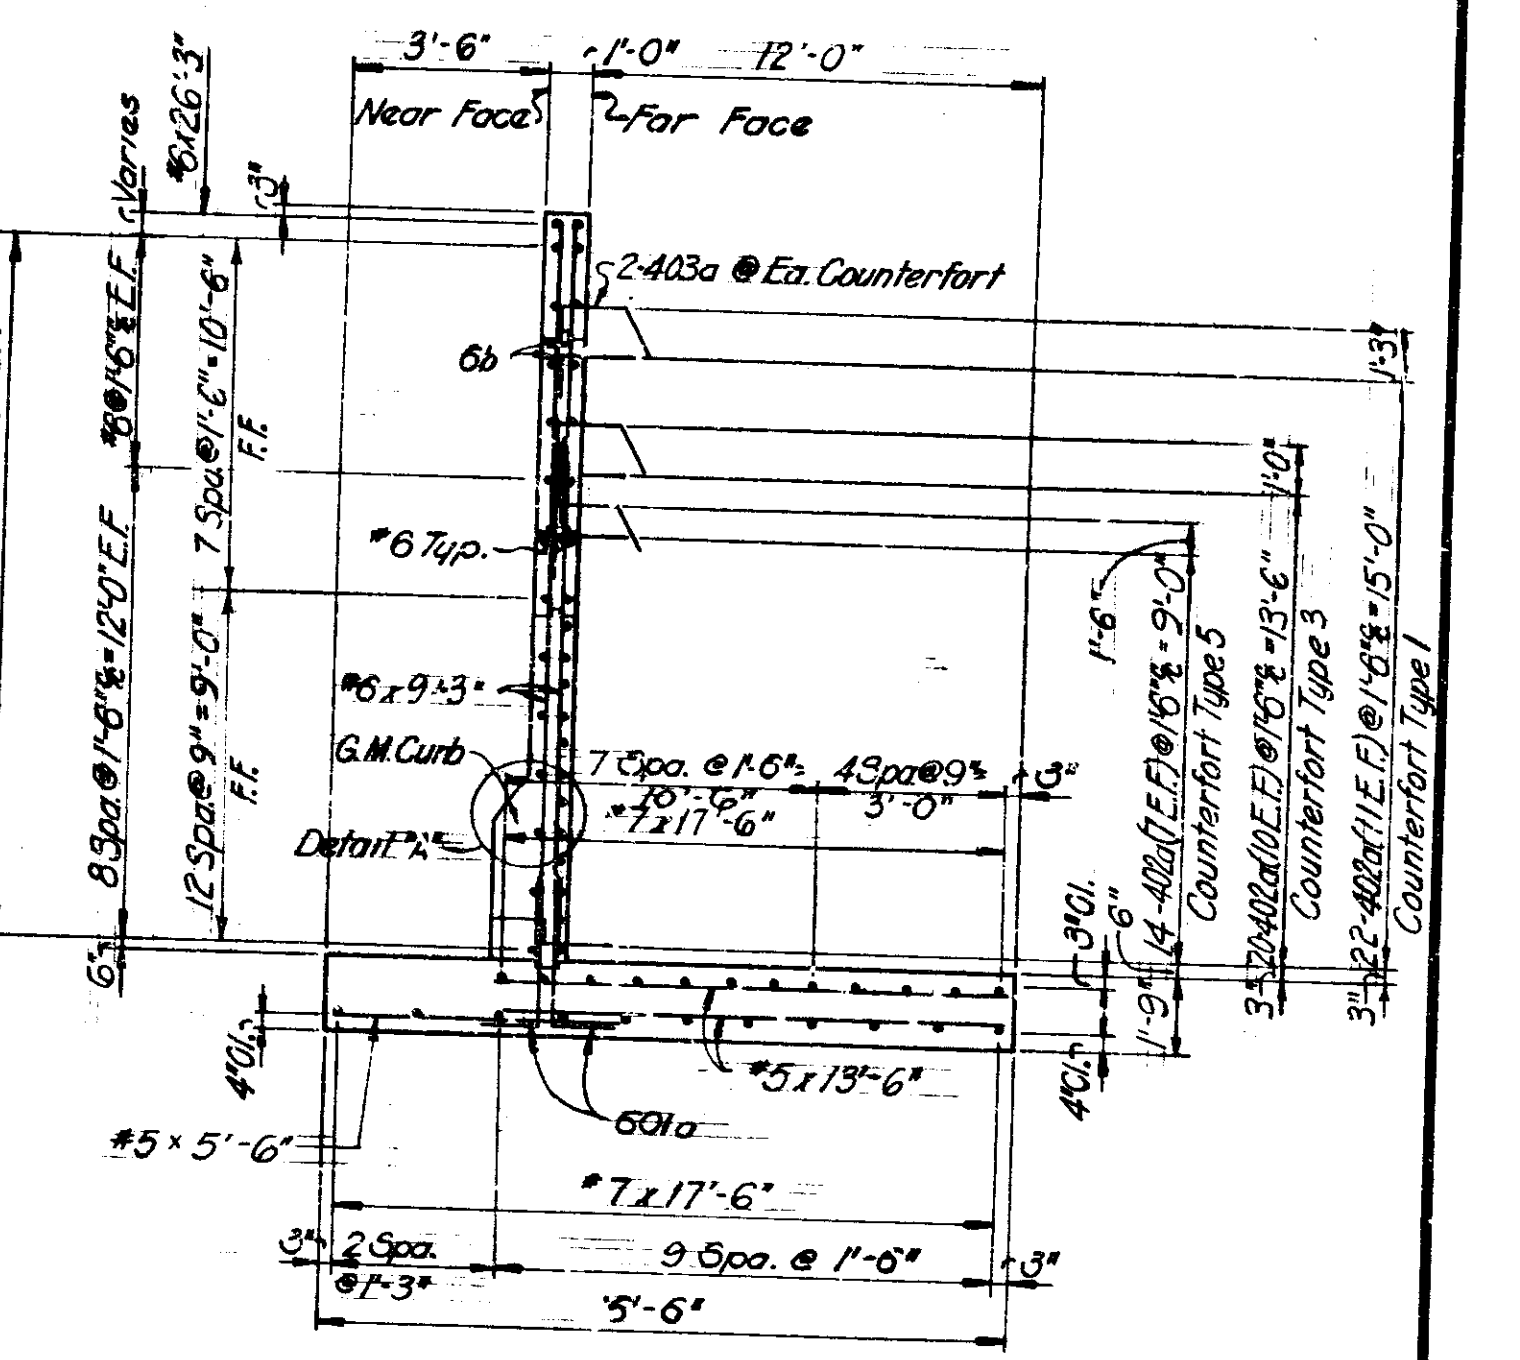 3'-6"
1'-0"
12'-0"
Near Face
Far Face
Varies
#6x26'-3"
3"
2-403a @ Ea. Counterfort
6b
#6@1'-6"± E.F.
7 Spa@1'-6"=10'-6"
F.F.
#6 Typ.
8 Spa@1'-6"±=12'-0" E.F.
12 Spa@9"=9'-0"
F.F.
#6x9'-3"
G.M. Curb
Detail "A"
7 Spa. @ 1'-6"=
10'-6"
4 Spa@9"=
3'-0"
3"
#7x17'-6"
1'-3"
1'-0"
1'-6"
14-402a(7 E.F.)@1'-6"±=9'-0"
Counterfort Type 5
20-402a(10 E.F.)@1'-6"±=13'-6"
Counterfort Type 3
22-402a(11 E.F.)@1'-6"±=15'-0"
Counterfort Type 1
6"
3"Cl.
6"
1'-9"
3"
3"
4"Cl.
4"Cl.
#5x13'-6"
601a
#5 x 5'-6"
#7x17'-6"
3"
2 Spa.
@1'-3"
9 Spa. @ 1'-6"
3"
5'-6"